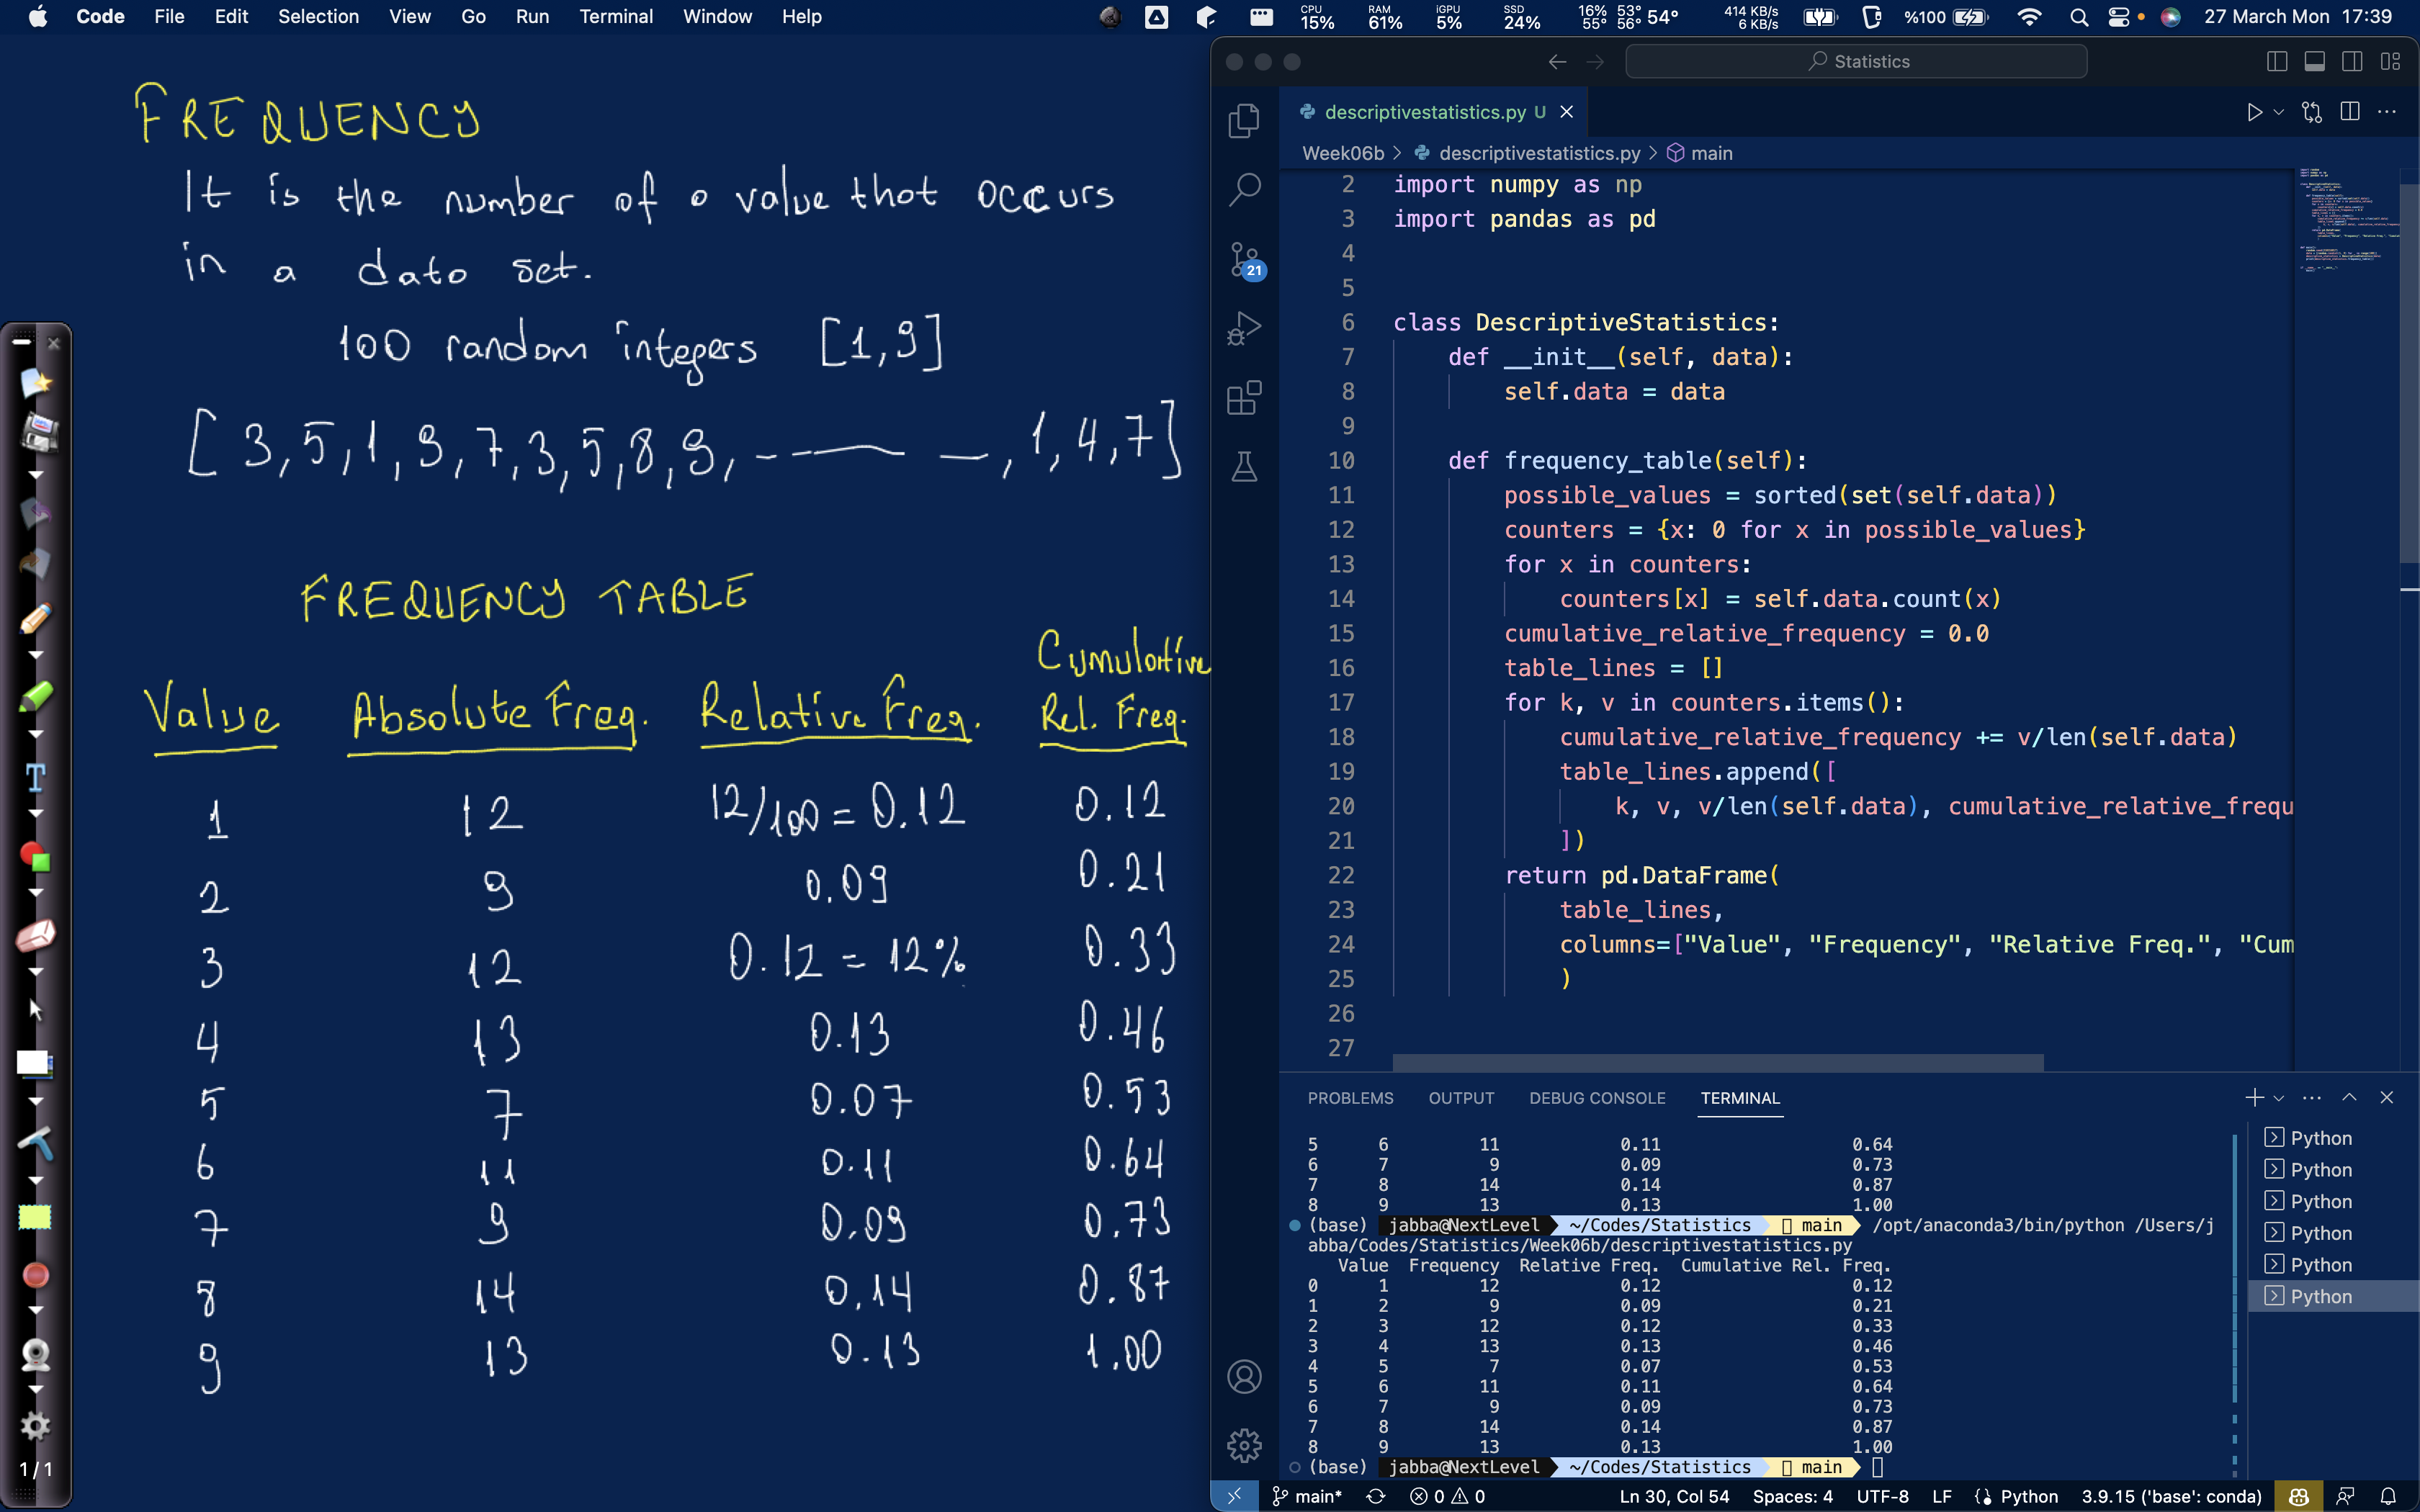 Code File Edit Selection View Go Run Terminal Window Help
CPU 15% RAM 61% iGPU 5% SSD 24% 16% 55° 53° 56° 54° 414 KB/s 6 KB/s %100 27 March Mon 17:39
FREQUENCY
It is the number of a value that occurs
in a data set.
100 random integers [1,9]
[3,5,1,9,7,3,5,8,9,------,1,4,7]
FREQUENCY TABLE
Value Absolute Freq. Relative Freq. Cumulative Rel. Freq.
1 12 12/100 = 0.12 0.12
2 9 0.09 0.21
3 12 0.12 = 12% 0.33
4 13 0.13 0.46
5 7 0.07 0.53
6 11 0.11 0.64
7 9 0.09 0.73
8 14 0.14 0.87
9 13 0.13 1.00
1/1
Statistics
descriptivestatistics.py U
Week06b > descriptivestatistics.py > main
21
2 import numpy as np
3 import pandas as pd
4
5
6 class DescriptiveStatistics:
7 def __init__(self, data):
8 self.data = data
9
10 def frequency_table(self):
11 possible_values = sorted(set(self.data))
12 counters = {x: 0 for x in possible_values}
13 for x in counters:
14 counters[x] = self.data.count(x)
15 cumulative_relative_frequency = 0.0
16 table_lines = []
17 for k, v in counters.items():
18 cumulative_relative_frequency += v/len(self.data)
19 table_lines.append([
20 k, v, v/len(self.data), cumulative_relative_frequ
21 ])
22 return pd.DataFrame(
23 table_lines,
24 columns=["Value", "Frequency", "Relative Freq.", "Cum
25 )
26
27
PROBLEMS OUTPUT DEBUG CONSOLE TERMINAL
5 6 11 0.11 0.64
6 7 9 0.09 0.73
7 8 14 0.14 0.87
8 9 13 0.13 1.00
(base) jabba@NextLevel ~/Codes/Statistics main /opt/anaconda3/bin/python /Users/j
abba/Codes/Statistics/Week06b/descriptivestatistics.py
Value Frequency Relative Freq. Cumulative Rel. Freq.
0 1 12 0.12 0.12
1 2 9 0.09 0.21
2 3 12 0.12 0.33
3 4 13 0.13 0.46
4 5 7 0.07 0.53
5 6 11 0.11 0.64
6 7 9 0.09 0.73
7 8 14 0.14 0.87
8 9 13 0.13 1.00
(base) jabba@NextLevel ~/Codes/Statistics main
Python
Python
Python
Python
Python
Python
main* 0 0 Ln 30, Col 54 Spaces: 4 UTF-8 LF Python 3.9.15 ('base': conda)